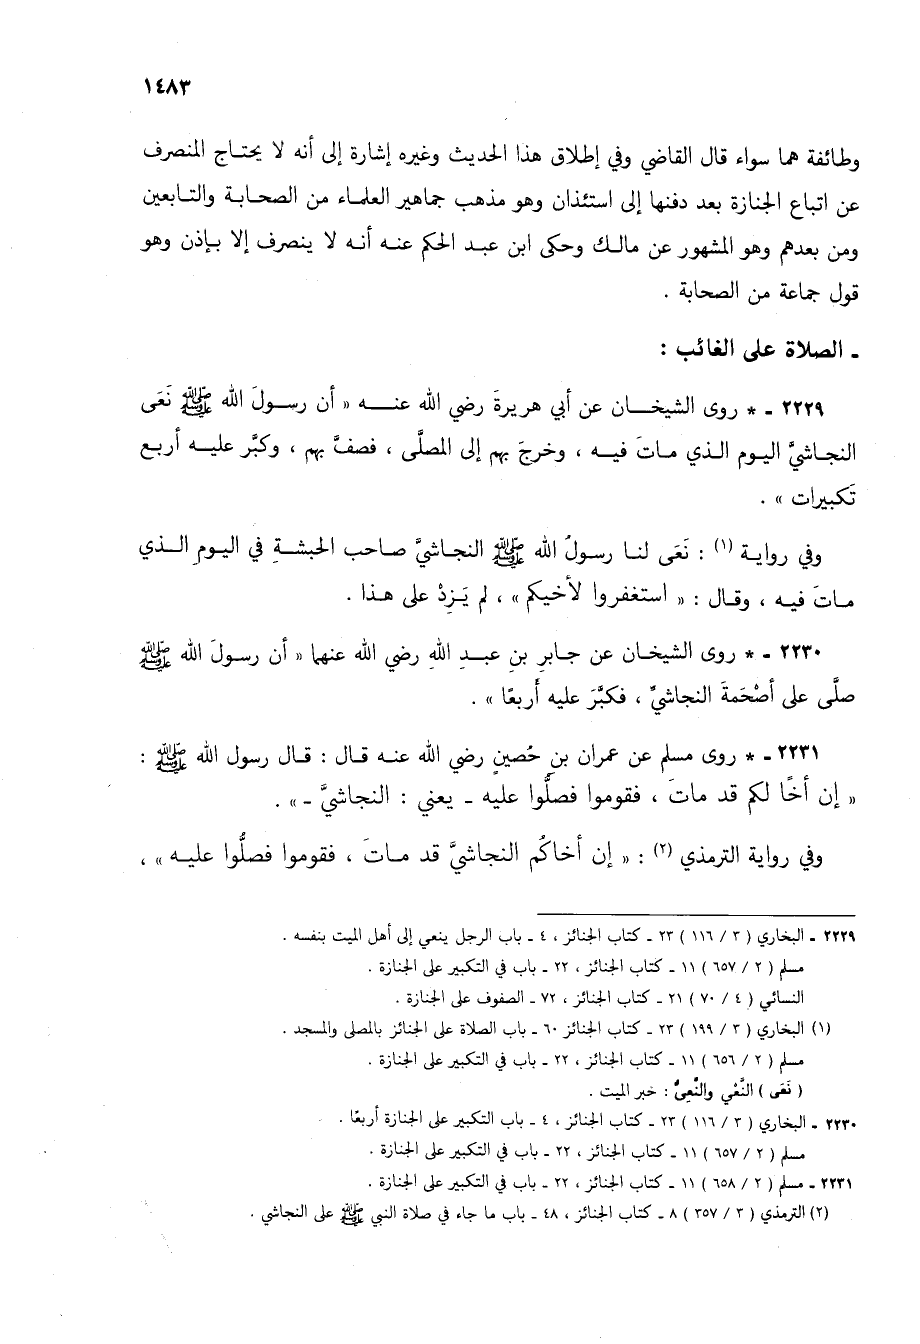 ١٤٨٣
وطائفة هما سواء قال القاضي وفي إطلاق هذا الحديث وغيره إشارة إلى أنه لا يحتاج المنصرف
عن اتباع الجنازة بعد دفنها إلى استئذان وهو مذهب جماهير العلماء من الصحابة والتابعين
ومن بعدهم وهو المشهور عن مالك وحكى ابن عبد الحكم عنه أنه لا ينصرف إلا بإذن وهو
قول جماعة من الصحابة .
ـ الصلاة على الغائب :
٢٢٢٩ ـ * روى الشيخان عن أبي هريرةَ رضي الله عنه « أن رسولَ الله ﷺ نَعَى
النجاشيَّ اليوم الذي ماتَ فيه ، وخرجَ بهم إلى المصلَّى ، فصفَّ بهم ، وكبَّر عليه أربع
تَكبيرات » .
وفي رواية (١) : نَعَى لنا رسولُ الله ﷺ النجاشيَّ صاحب الحبشةِ في اليومِ الذي
ماتَ فيه ، وقال : « استغفروا لأخيكم » ، لم يَزِدْ على هذا .
٢٢٣٠ ـ * روى الشيخان عن جابرِ بنِ عبدِ اللهِ رضي الله عنهما « أن رسولَ الله ﷺ
صلَّى على أصْحَمةَ النجاشيِّ ، فكبَّرَ عليه أربعًا » .
٢٢٣١ ـ * روى مسلم عن عمران بنِ حُصينٍ رضي الله عنه قال : قال رسول الله ﷺ :
« إن أخًا لكم قد ماتَ ، فقوموا فصلُّوا عليه ـ يعني : النجاشيَّ ـ » .
وفي رواية الترمذي (٢) : « إن أخاكُم النجاشيَّ قد ماتَ ، فقوموا فصلُّوا عليه » ،
٢٢٢٩ ـ البخاري ( ٣ / ١١٦ ) ٢٣ ـ كتاب الجنائز ، ٤ ـ باب الرجل ينعي إلى أهل الميت بنفسه .
مسلم ( ٢ / ٦٥٧ ) ١١ ـ كتاب الجنائز ، ٢٢ ـ باب في التكبير على الجنازة .
النسائي ( ٤ / ٧٠ ) ٢١ ـ كتاب الجنائز ، ٧٢ ـ الصفوف على الجنازة .
(١) البخاري ( ٣ / ١٩٩ ) ٢٣ ـ كتاب الجنائز ٦٠ ـ باب الصلاة على الجنائز بالمصلى والمسجد .
مسلم ( ٢ / ٦٥٦ ) ١١ ـ كتاب الجنائز ، ٢٢ ـ باب في التكبير على الجنازة .
( نَعَى ) النَّعْي والنَّعِيُّ : خبر الميت .
٢٢٣٠ ـ البخاري ( ٣ / ١١٦ ) ٢٣ ـ كتاب الجنائز ، ٤ ـ باب التكبير على الجنازة أربعًا .
مسلم ( ٢ / ٦٥٧ ) ١١ ـ كتاب الجنائز ، ٢٢ ـ باب في التكبير على الجنازة .
٢٢٣١ ـ مسلم ( ٢ / ٦٥٨ ) ١١ ـ كتاب الجنائز ، ٢٢ ـ باب في التكبير على الجنازة .
(٢) الترمذي ( ٣ / ٣٥٧ ) ٨ ـ كتاب الجنائز ، ٤٨ ـ باب ما جاء في صلاة النبي ﷺ على النجاشي .